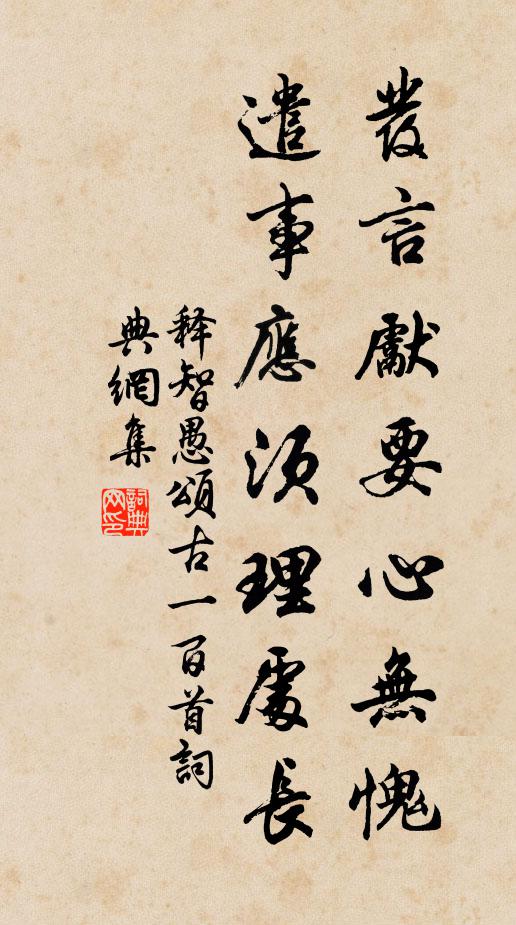 發言獻要心無愧
遣事應須理處長
释智愚頌古一百首詞
典網集
詞典網印